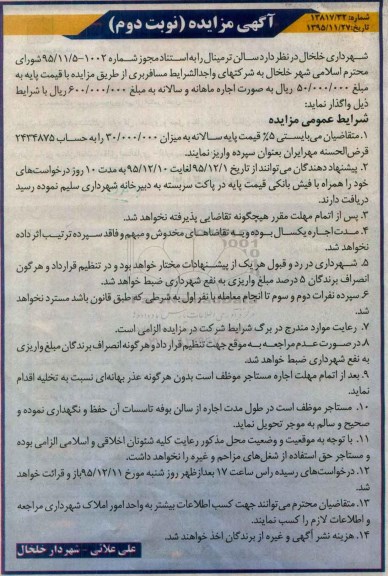 شماره: ۱۳۸۱۷/۲۲
تاریخ: ۱۳۹۵/۱۱/۲۷
آگهی مزایده (نوبت دوم)
شهرداری خلخال در نظر دارد سالن ترمینال را به استناد مجوز شماره ۱۰۰۲-۹۵/۱۱/۵ شورای
محترم اسلامی شهر خلخال به شرکتهای واجدالشرایط مسافربری از طریق مزایده با قیمت پایه به
مبلغ ۵۰/۰۰۰/۰۰۰ ریال به صورت اجاره ماهانه و سالانه به مبلغ ۶۰۰/۰۰۰/۰۰۰ ریال با شرایط
ذیل واگذار نماید:
شرایط عمومی مزایده
۱. متقاضیان می‌بایستی ۵% قیمت پایه سالانه به میزان ۳۰/۰۰۰/۰۰۰ را به حساب ۲۴۳۴۸۷۵
قرض‌الحسنه مهر ایران بعنوان سپرده واریز نمایند.
۲. پیشنهاد دهندگان می‌توانند از تاریخ ۹۵/۱۲/۱ لغایت ۹۵/۱۲/۱۰ به مدت ۱۰ روز درخواست‌های
خود را همراه با فیش بانکی قیمت پایه در پاکت سربسته به دبیرخانه شهرداری سلیم نموده رسید
دریافت دارند.
۳. پس از اتمام مهلت مقرر هیچگونه تقاضایی پذیرفته نخواهد شد.
۴. مدت اجاره یکسال بوده و به تقاضاهای مخدوش و مبهم و فاقد سپرده ترتیب اثر داده
نخواهد شد.
۵. شهرداری در رد و قبول هر یک از پیشنهادات مختار خواهد بود و در تنظیم قرارداد و هرگون
انصراف برندگان ۵ درصد مبلغ واریزی به نفع شهرداری ضبط خواهد شد.
۶. سپرده نفرات دوم و سوم تا انجام معامله با نفر اول به شرطی که طبق قانون باشد مسترد نخواهد
شد.
۷. رعایت موارد مندرج در برگ شرایط شرکت در مزایده الزامی است.
۸. در صورت عدم مراجعه به موقع جهت تنظیم قرارداد و هر گونه انصراف برندگان مبلغ واریزی
به نفع شهرداری ضبط خواهد شد.
۹. بعد از اتمام مهلت اجاره مستاجر موظف است بدون هر گونه عذر بهانه‌ای نسبت به تخلیه اقدام
نماید.
۱۰. مستاجر موظف است در طول مدت اجاره از سالن بوفه تاسسات آن حفظ و نگهداری نموده و
صحیح و سالم به موجر تحویل نماید.
۱۱. با توجه به موقعیت و وضعیت محل مذکور رعایت کلیه شئونات اخلاقی و اسلامی الزامی بوده
و مستاجر حق استفاده از شغل‌های مزاحم و غیره را نخواهد داشت.
۱۲. درخواست‌های رسیده راس ساعت ۱۷ بعدازظهر روز شنبه مورخ ۹۵/۱۲/۱۱ باز و قرائت خواهد
شد.
۱۳. متقاضیان محترم می‌توانند جهت کسب اطلاعات بیشتر به واحد امور املاک شهرداری مراجعه
و اطلاعات لازم را کسب نمایند.
۱۴. هزینه نشر آگهی و غیره از برندگان اخذ خواهند شد.
علی علائی - شهردار خلخال